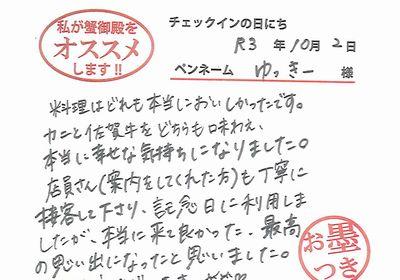 私が蟹御殿を
オススメ
します!!
チェックインの日にち
R3 年 10月 2日
ペンネーム ゆっきー 様
料理はどれも本当においしかったです。
カニと佐賀牛をどちらも味わえ、
本当に幸せな気持ちになりました。
店員さん(案内をしてくれた方)も丁寧に
接客して下さり、記念日に利用しま
したが、本当に来て良かった、最高
の思い出になったと思いました。
お墨
つき